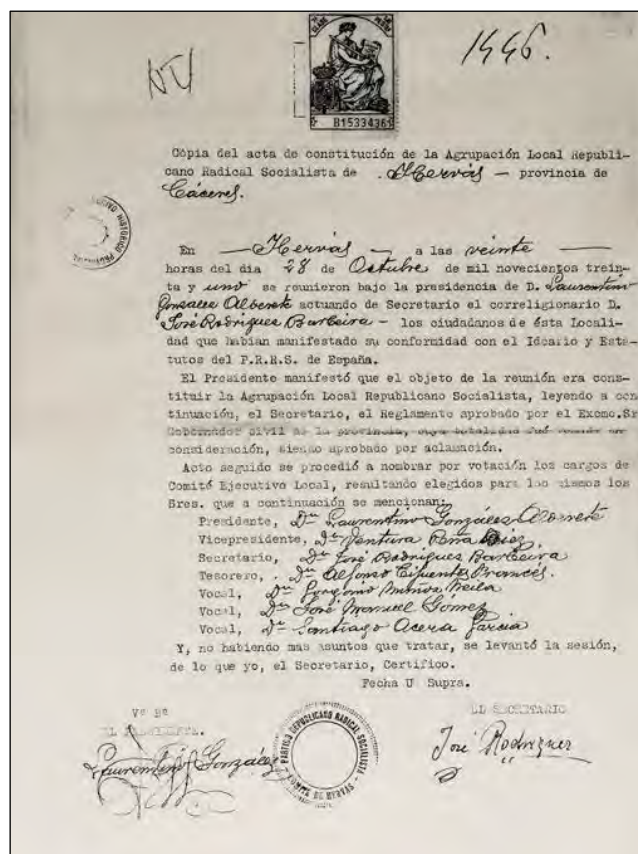 1446.
B1533436
Cópia del acta de constitución de la Agrupación Local Republi-
cano Radical Socialista de . Hervás — provincia de
Cáceres.
En — Hervás — a las veinte —
horas del dia 28 de Octubre de mil novecientos trein-
ta y uno se reunieron bajo la presidencia de D. Laurentino
Gonzalez Alberete actuando de Secretario el correligionario D.
José Rodrigues Barbeira — los ciudadanos de ésta Locali-
dad que habian manifestado su conformidad con el Ideario y Esta-
tutos del P.R.R.S. de España.
El Presidente manifestó que el objeto de la reunión era cons-
tituir la Agrupación Local Republicano Socialista, leyendo a con
tinuación, el Secretario, el Reglamento aprobado por el Excmo.Sr
Gobernador civil de la provincia, cuya totalidad fué
consideración, siendo aprobado por aclamación.
Acto seguido se procedió a nombrar por votación los cargos de
Comité Ejecutivo Local, resultando elegidos para los mismos los
Sres. que a continuación se mencionan:
Presidente, Dn Laurentino González Alberete
Vicepresidente, Dn Ventura Peña Díez
Secretario, Dn José Rodrigues Barbeira
Tesorero, . Dn Alfonso Cifuentes Francés.
Vocal, Dn Gorgonio Muñoz Neila
Vocal, Dn José Manuel Gómez
Vocal, Dn Santiago Acera García
Y, no habiendo mas asuntos que tratar, se levantó la sesión,
de lo que yo, el Secretario, Certifico.
Fecha U Supra.
Vº Bº
EL PRESIDENTE.
EL SECRETARIO
Laurentino González
José Rodriguez
PARTIDO REPUBLICANO RADICAL SOCIALISTA
COMITÉ DE HERVAS
HISTORICO PROVINCIAL